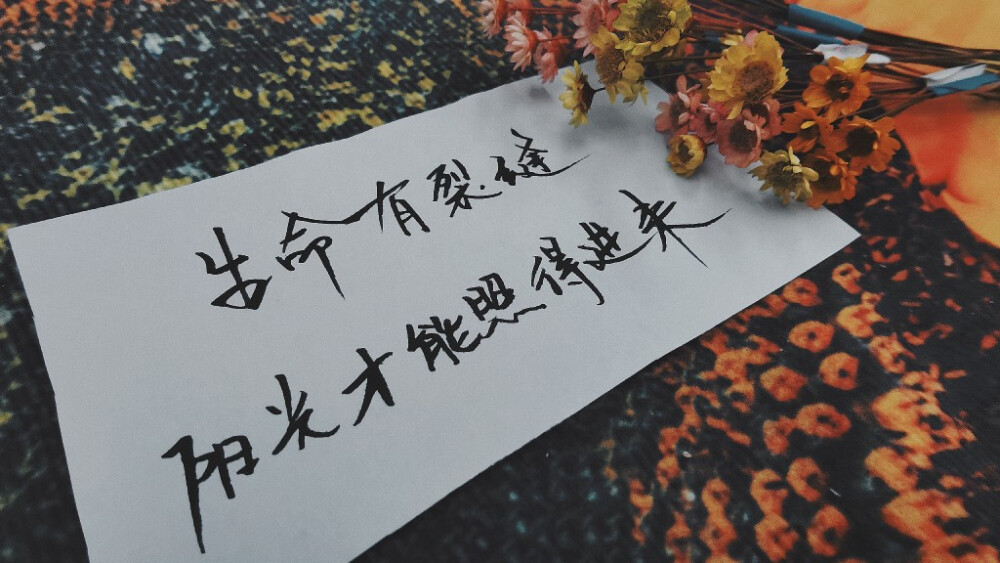 生命有裂缝
阳光才能照得进来